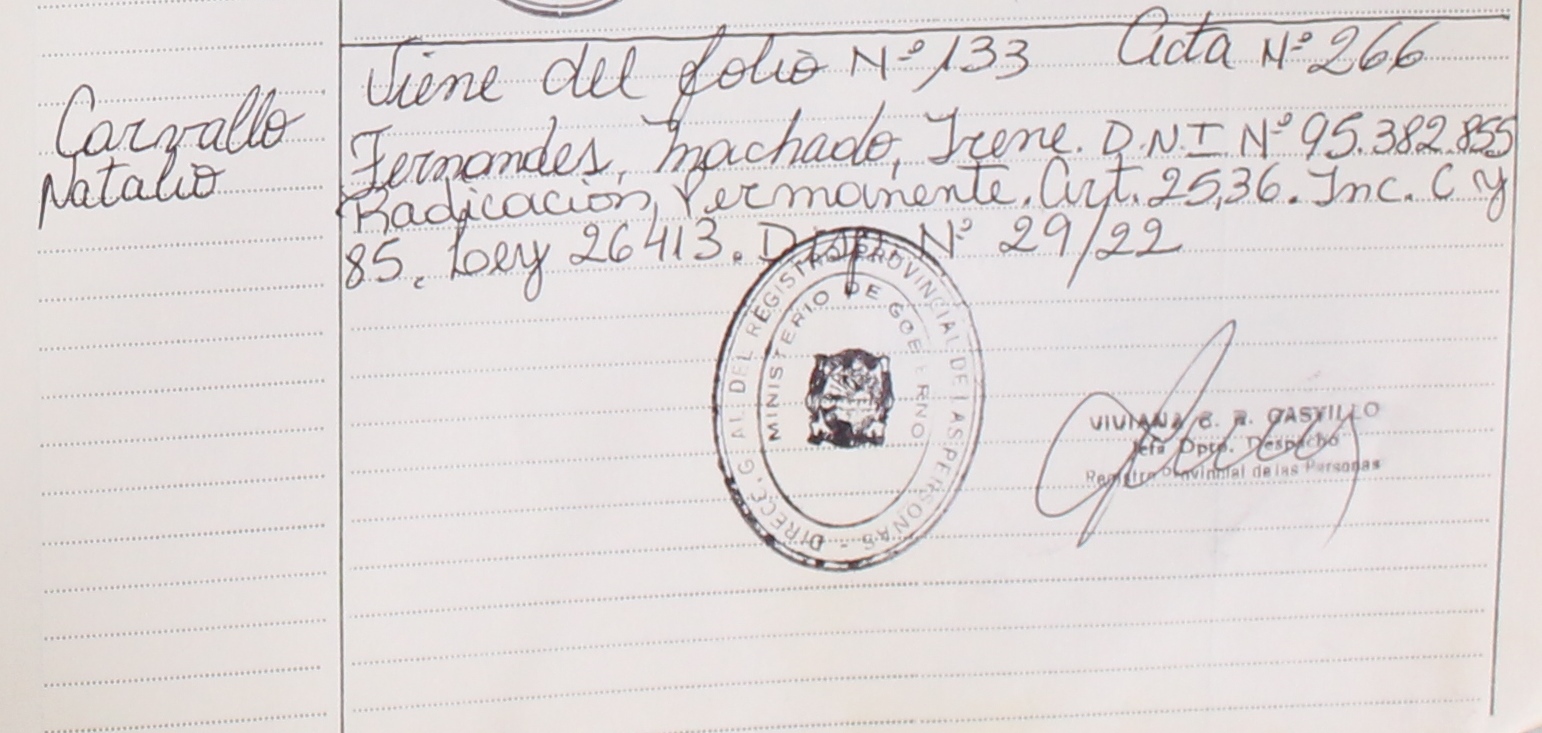 Carvallo
Natalio
Viene del folio Nº 133 Acta Nº 266
Fernandes, Machado, Irene. D.N.I Nº 95.382.855
Radicación, Permanente. Art. 25,36. Inc. C y
85. Ley 26413. Disp. Nº 29/22
DIRECC. GRAL DEL REGISTRO PROVINCIAL DE LAS PERSONAS -
MINISTERIO DE GOBIERNO
VIVIANA C. R. CASTILLO
Jefa Dpto. Despacho
Registro Provincial de las Personas